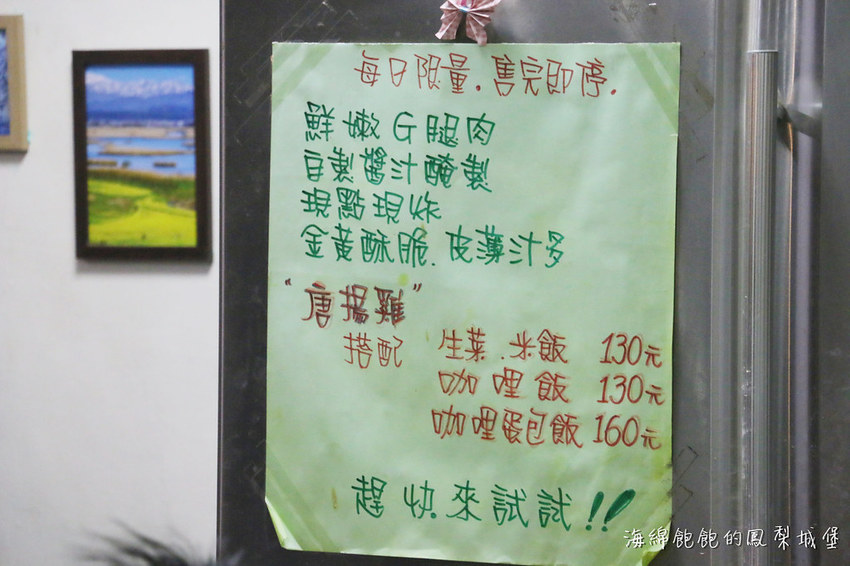 每日限量.售完即停.
鮮嫩G腿肉
自製醬汁醃製
現點現炸
金黃酥脆.皮薄汁多
"唐揚雞"
搭配 生菜.米飯 130元
咖哩飯 130元
咖哩蛋包飯 160元
趕快來試試!!
海綿飽飽的鳳梨城堡